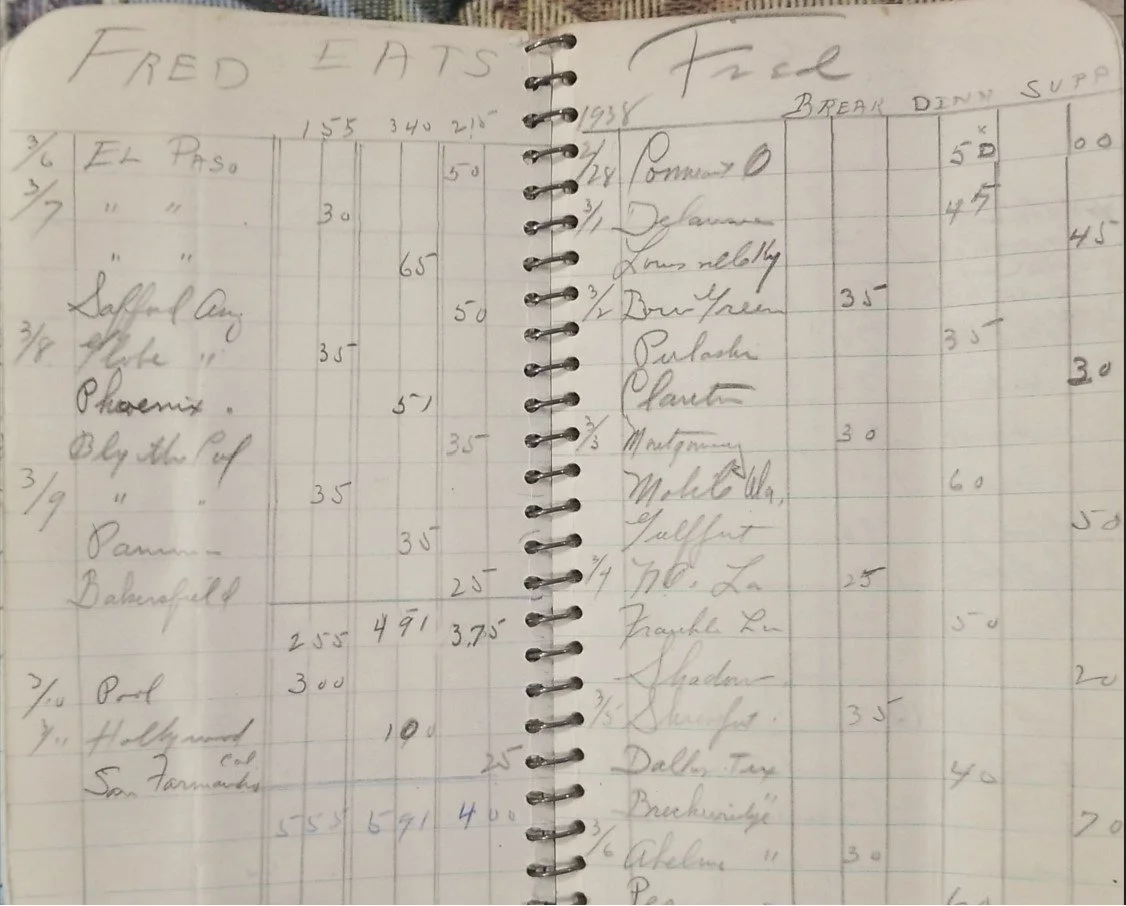 FRED EATS
155 340 215
3/6 EL PASO 50
3/7 " " 30
" " 65
Safford 50
3/8 Globe " 35
Phoenix . 51
Blythe Cal 35
3/9 " " 35
35
Bakersfield 25
255 491 3.75
3/10 Pool 300
3/11 Hollywood 100
San Fernando Cal 25
555 591 400
Fred
1938 BREAK DINN SUPP
2/28 O 50 00
3/1 Delaware 45
45
3/2 Bow Green 35
Pulaski 35
30
3/3 Montgomery 30
Mobile Ala, 60
Gulfport 50
3/4 N.O. La 25
50
20
3/5 Shreveport . 35
Dallas Tex 40
Breckenridge " 70
3/6 Abelene " 30
60